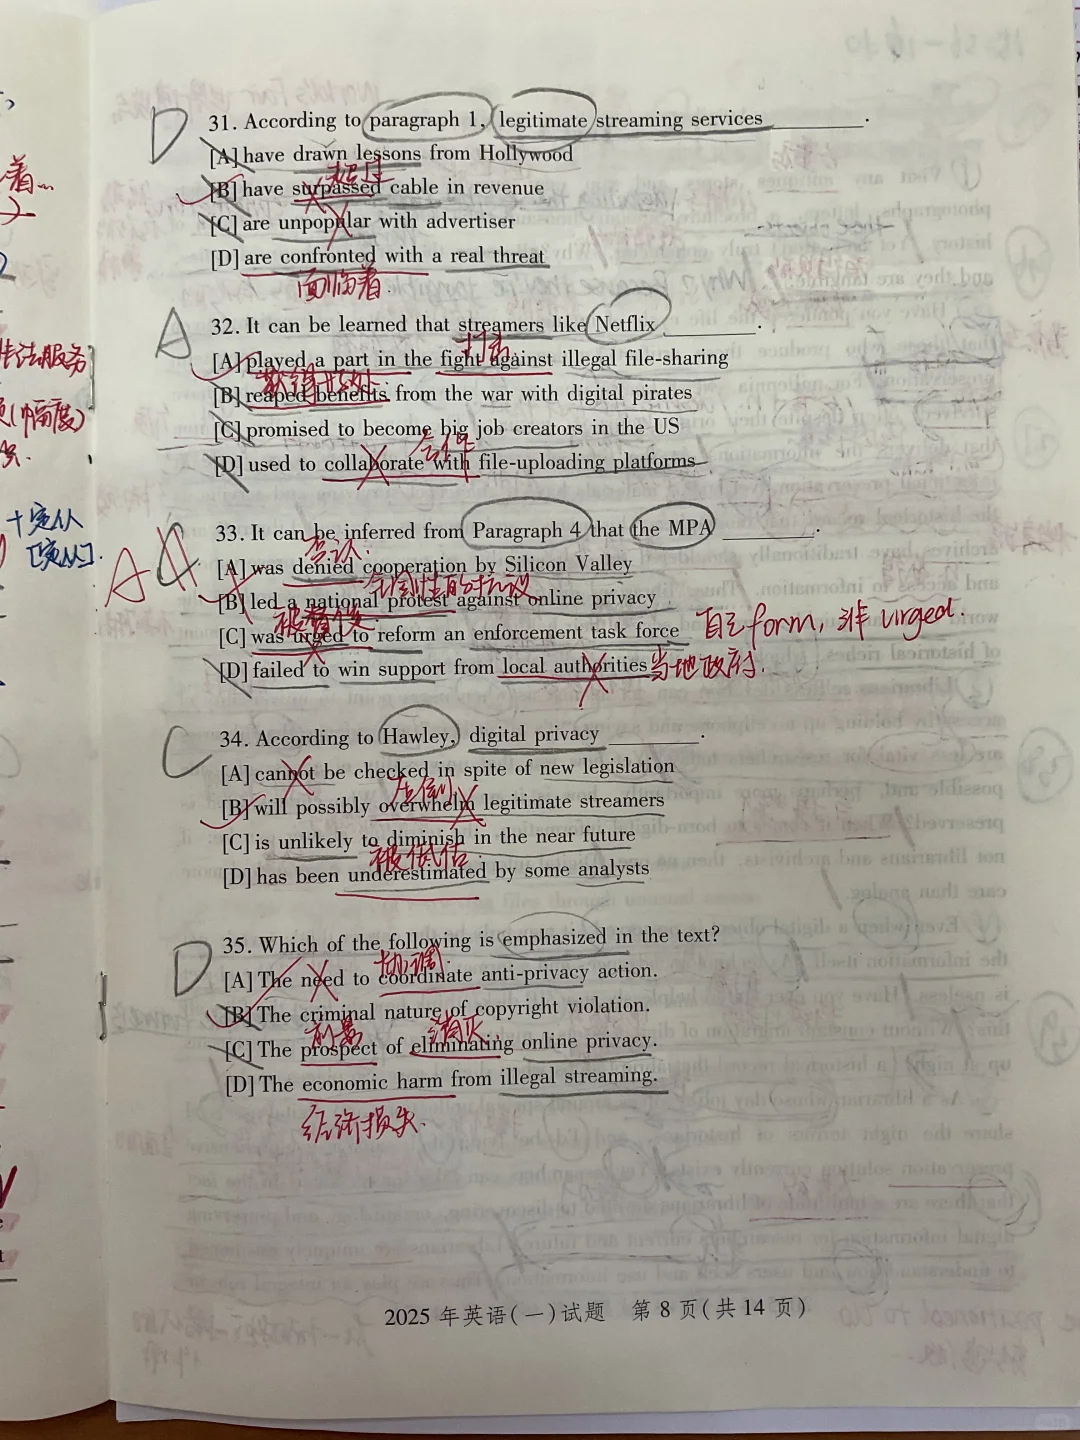 着...
生活服务
(幅度)
定从
[定从].
D
31. According to paragraph 1, legitimate streaming services ________.
[A] have drawn lessons from Hollywood
超过
[B] have surpassed cable in revenue
[C] are unpopular with advertiser
[D] are confronted with a real threat
面临着.
A
32. It can be learned that streamers like Netflix ________.
打击
[A] played a part in the fight against illegal file-sharing
[B] reaped benefits from the war with digital pirates
[C] promised to become big job creators in the US
合作
[D] used to collaborate with file-uploading platforms
A
33. It can be inferred from Paragraph 4 that the MPA ________.
否认.
[A] was denied cooperation by Silicon Valley
全国性的抗议
[B] led a national protest against online privacy
被督促
[C] was urged to reform an enforcement task force 自己form, 非 urged.
[D] failed to win support from local authorities 当地政府.
C
34. According to Hawley, digital privacy ________.
[A] cannot be checked in spite of new legislation
压倒
[B] will possibly overwhelm legitimate streamers
[C] is unlikely to diminish in the near future
被低估
[D] has been underestimated by some analysts
D
35. Which of the following is emphasized in the text?
协调
[A] The need to coordinate anti-privacy action.
[B] The criminal nature of copyright violation.
前景 消灭
[C] The prospect of eliminating online privacy.
[D] The economic harm from illegal streaming.
经济损失.
2025 年英语(一)试题 第 8 页(共 14 页)